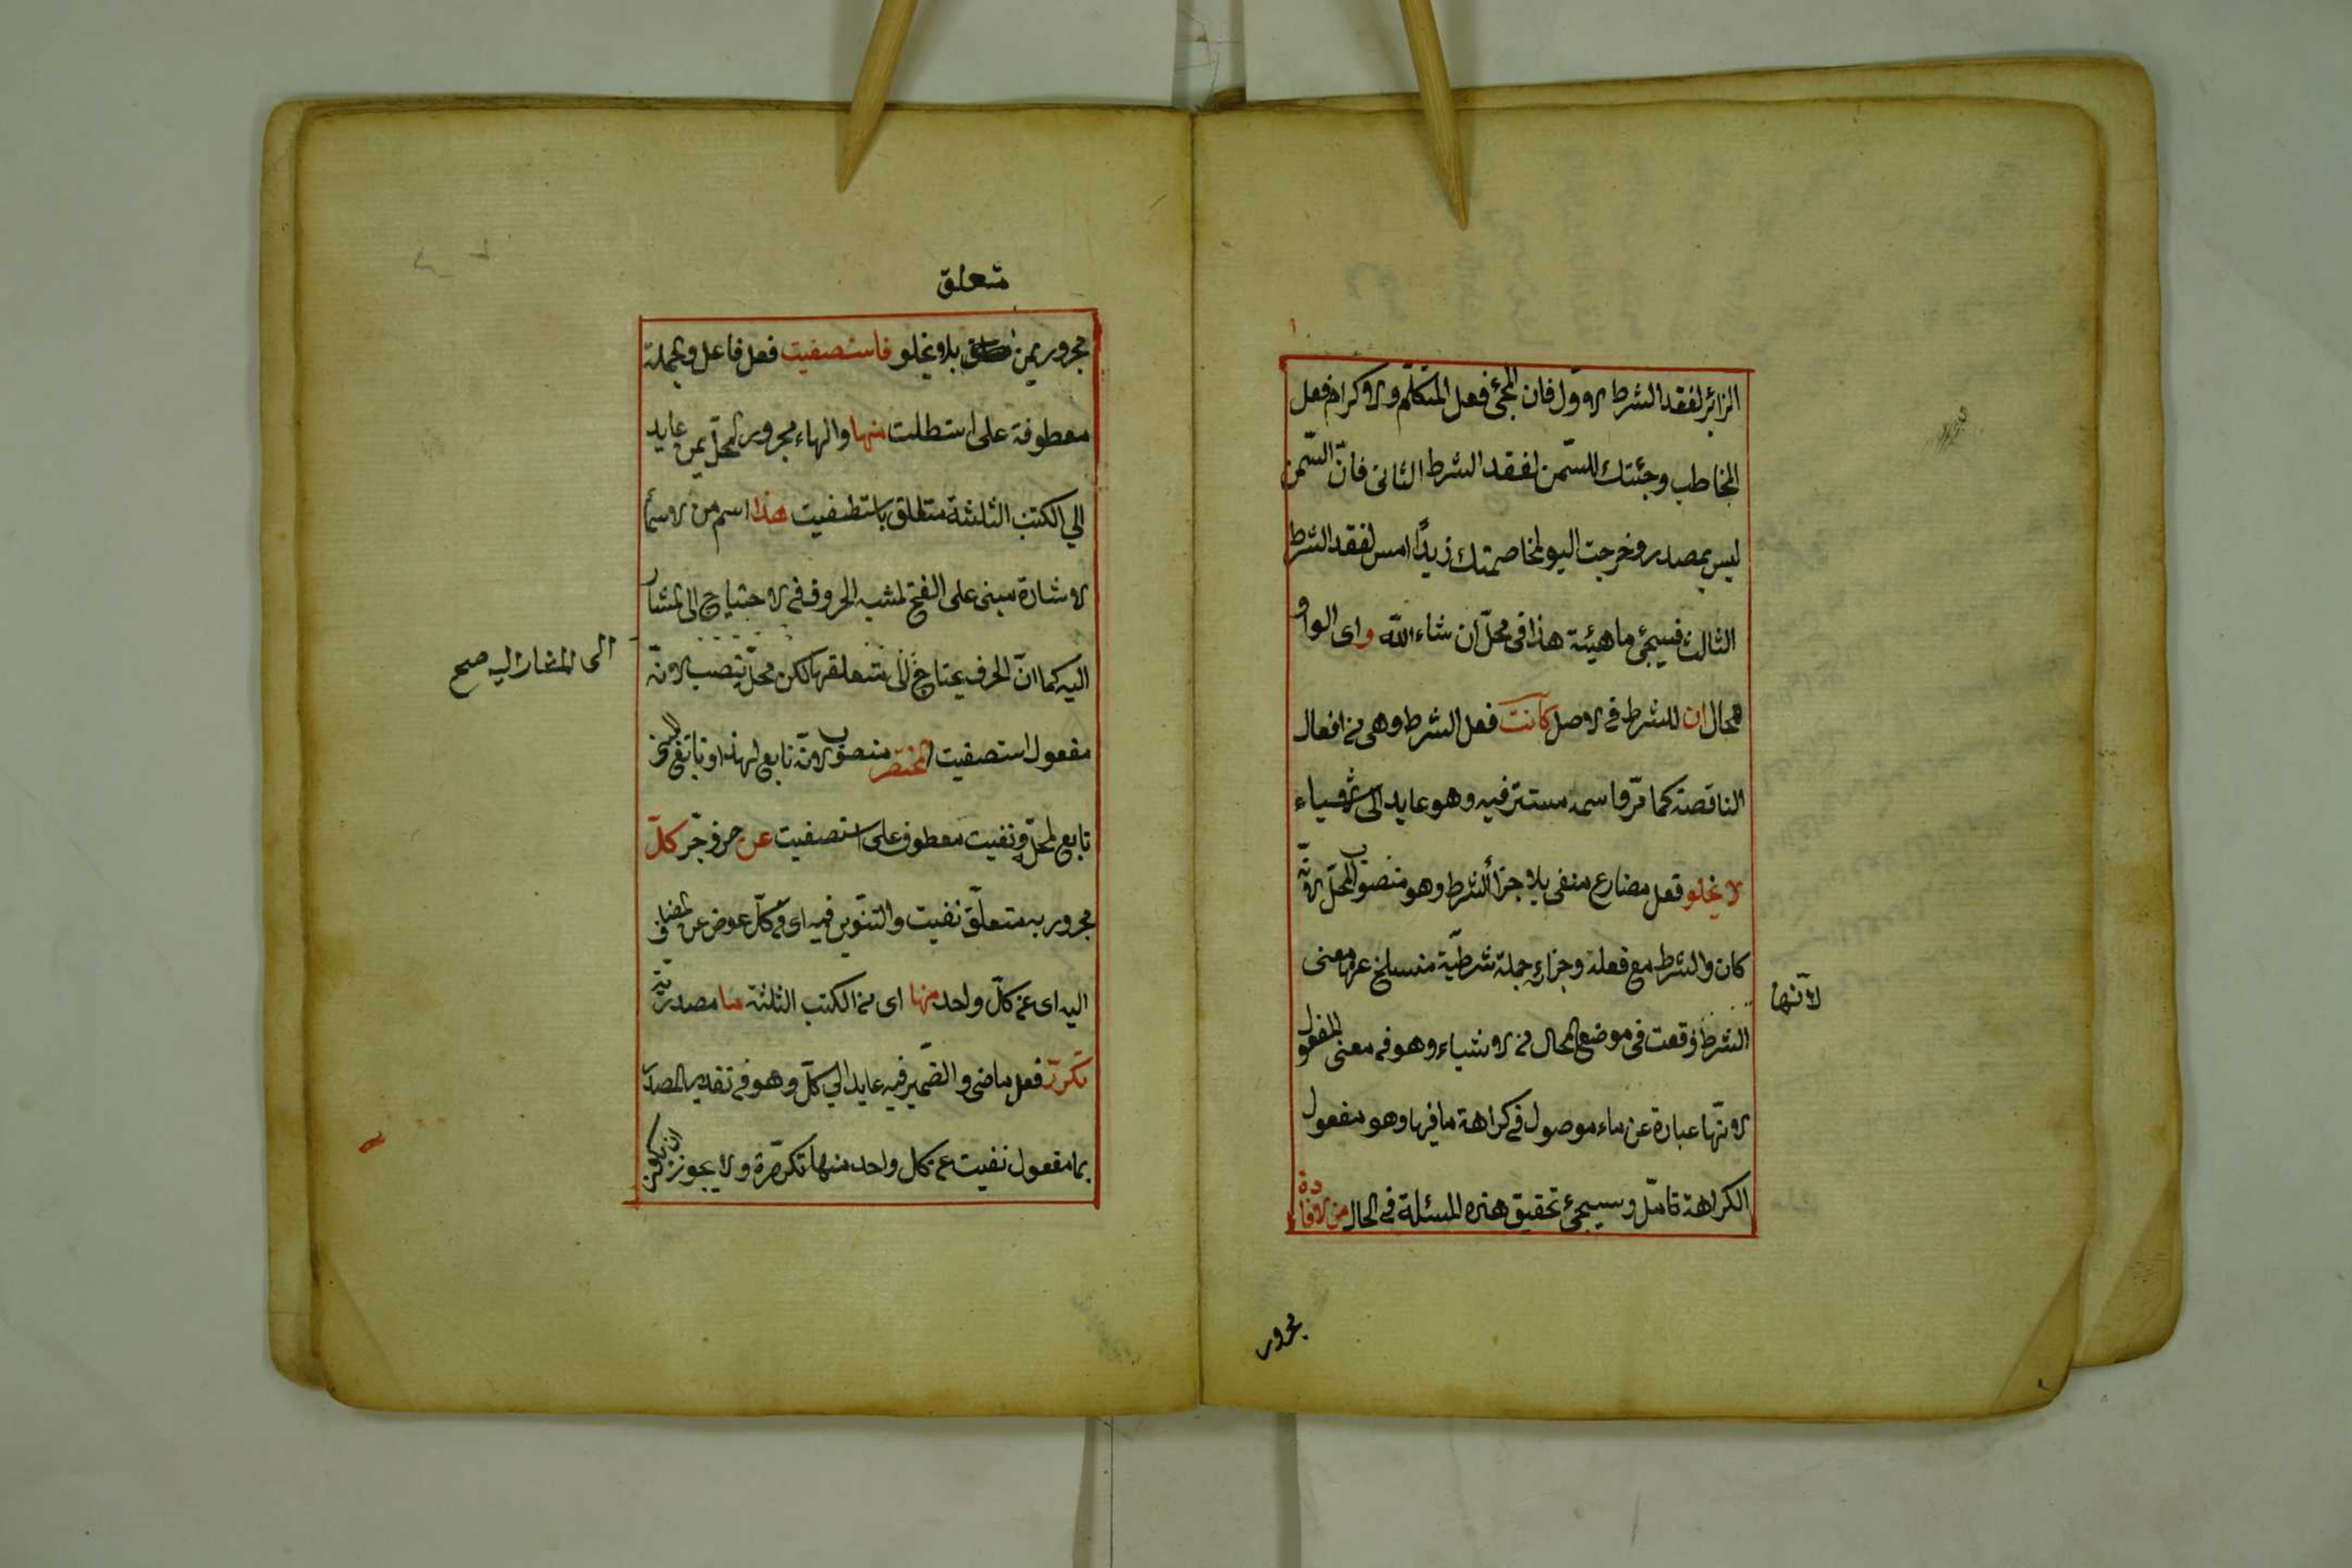 الزائر لفقد الشرط الاول فان المجئ فعل المتكلم والاكرام فعل
المخاطب وجئتك للسمن لفقد الشرط الثانى فانّ السّمن
ليس بمصدر وخرجت اليوم لمخاصمتك زيدًا امس لفقد الشرط
الثالث فسيجئ ماهيئة هذا فى محلّ ان شاء الله واى الواو
للحال ان للشرط فى الاصل كانت فعل الشرط وهى من افعال
الناقصة كما مرّ واسمه مستتر فيه وهو عايد الى الاشياء
لا يخلو فعل مضارع منفى بلا وجزأ الشرط وهو منصوب المحلّ لانّه
كان والشرط مع فعله وجزاءه جملة شرطيّة منسلخ عنها معنى
لانّها
الشرط وقعت فى موضع الحال من الاشياء وهو فى معنى المفعول
لانّها عبارة عن ماء موصول فى كراهة ما فيها وهو مفعول
الكراهة تامّل وسيجئ تحقيق هذه المسئلة فى الحال من الافادة
مجرور
متعلق
مجرور بمن بلا يخلو فاستصفيت فعل فاعل والجملة
معطوفة على استطلت منها والهاء مجرور المحلّ بمن عايد
الي الكتب الثلثة متعلق باستصفيت هذا اسم من الاسمأ
الاشارة مبنى على الفتح لمشبه الحروف فى الاحتياج الى المشار
اليه كما انّ الحرف يحتاج الى متعلقها لكن محلّ ينصب لانّه
الى المشار اليه صح
مفعول استصفيت المختصر منصوب لانّه تابع لهذا وتابع
تابع لمحلّ ونفيت معطوف على استصفيت عن حرف جّر كلّ
مجرور به متعلّق نفيت والتنّوين فيه اى فى كلّ عوض عن المضاف
اليه اى عن كلّ واحد منها اى من الكتب الثلثة ما مصدريّة
تكرّر فعل ماضى والضّمير فيه عايد الي كلّ وهو فى تقدير المصدر
بما مفعول نفيت عن كل واحد منها تكرّره ولا يجوز ان يكون